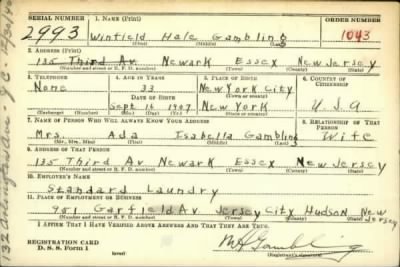 SERIAL NUMBER 1. NAME (Print) ORDER NUMBER
2993 Winfield Hale Gambling 1043
(First) (Middle) (Last)
2. ADDRESS (Print)
135 Third Av Newark Essex New Jersey
(Number and street or R. F. D. number) (Town) (County) (State)
3. TELEPHONE 4. AGE IN YEARS 5. PLACE OF BIRTH 6. COUNTRY OF CITIZENSHIP
None 33 New York City
DATE OF BIRTH (Town or county)
Sept 16 1907 New York U.S.A
(Exchange) (Number) (Mo.) (Day) (Yr.) (State or country)
7. NAME OF PERSON WHO WILL ALWAYS KNOW YOUR ADDRESS 8. RELATIONSHIP OF THAT PERSON
Mrs. Ada Isabella Gambling Wife
(Mr., Mrs., Miss) (First) (Middle) (Last)
9. ADDRESS OF THAT PERSON
135 Third Av Newark Essex New Jersey
(Number and street or R. F. D. number) (Town) (County) (State)
10. EMPLOYER'S NAME
Standard Laundry
11. PLACE OF EMPLOYMENT OR BUSINESS
951 Garfield Av Jersey City Hudson New Jersey
(Number and street or R. F. D. number) (Town) (County) (State)
I AFFIRM THAT I HAVE VERIFIED ABOVE ANSWERS AND THAT THEY ARE TRUE.
REGISTRATION CARD
D. S. S. Form 1 (over) (Registrant's signature)
Gambling
132 Arlington Ave - J C -